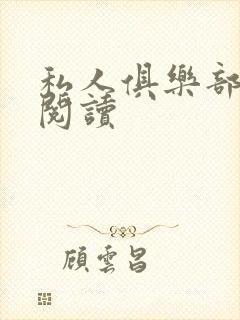 私人俱樂部
閱讀
顧雲昌